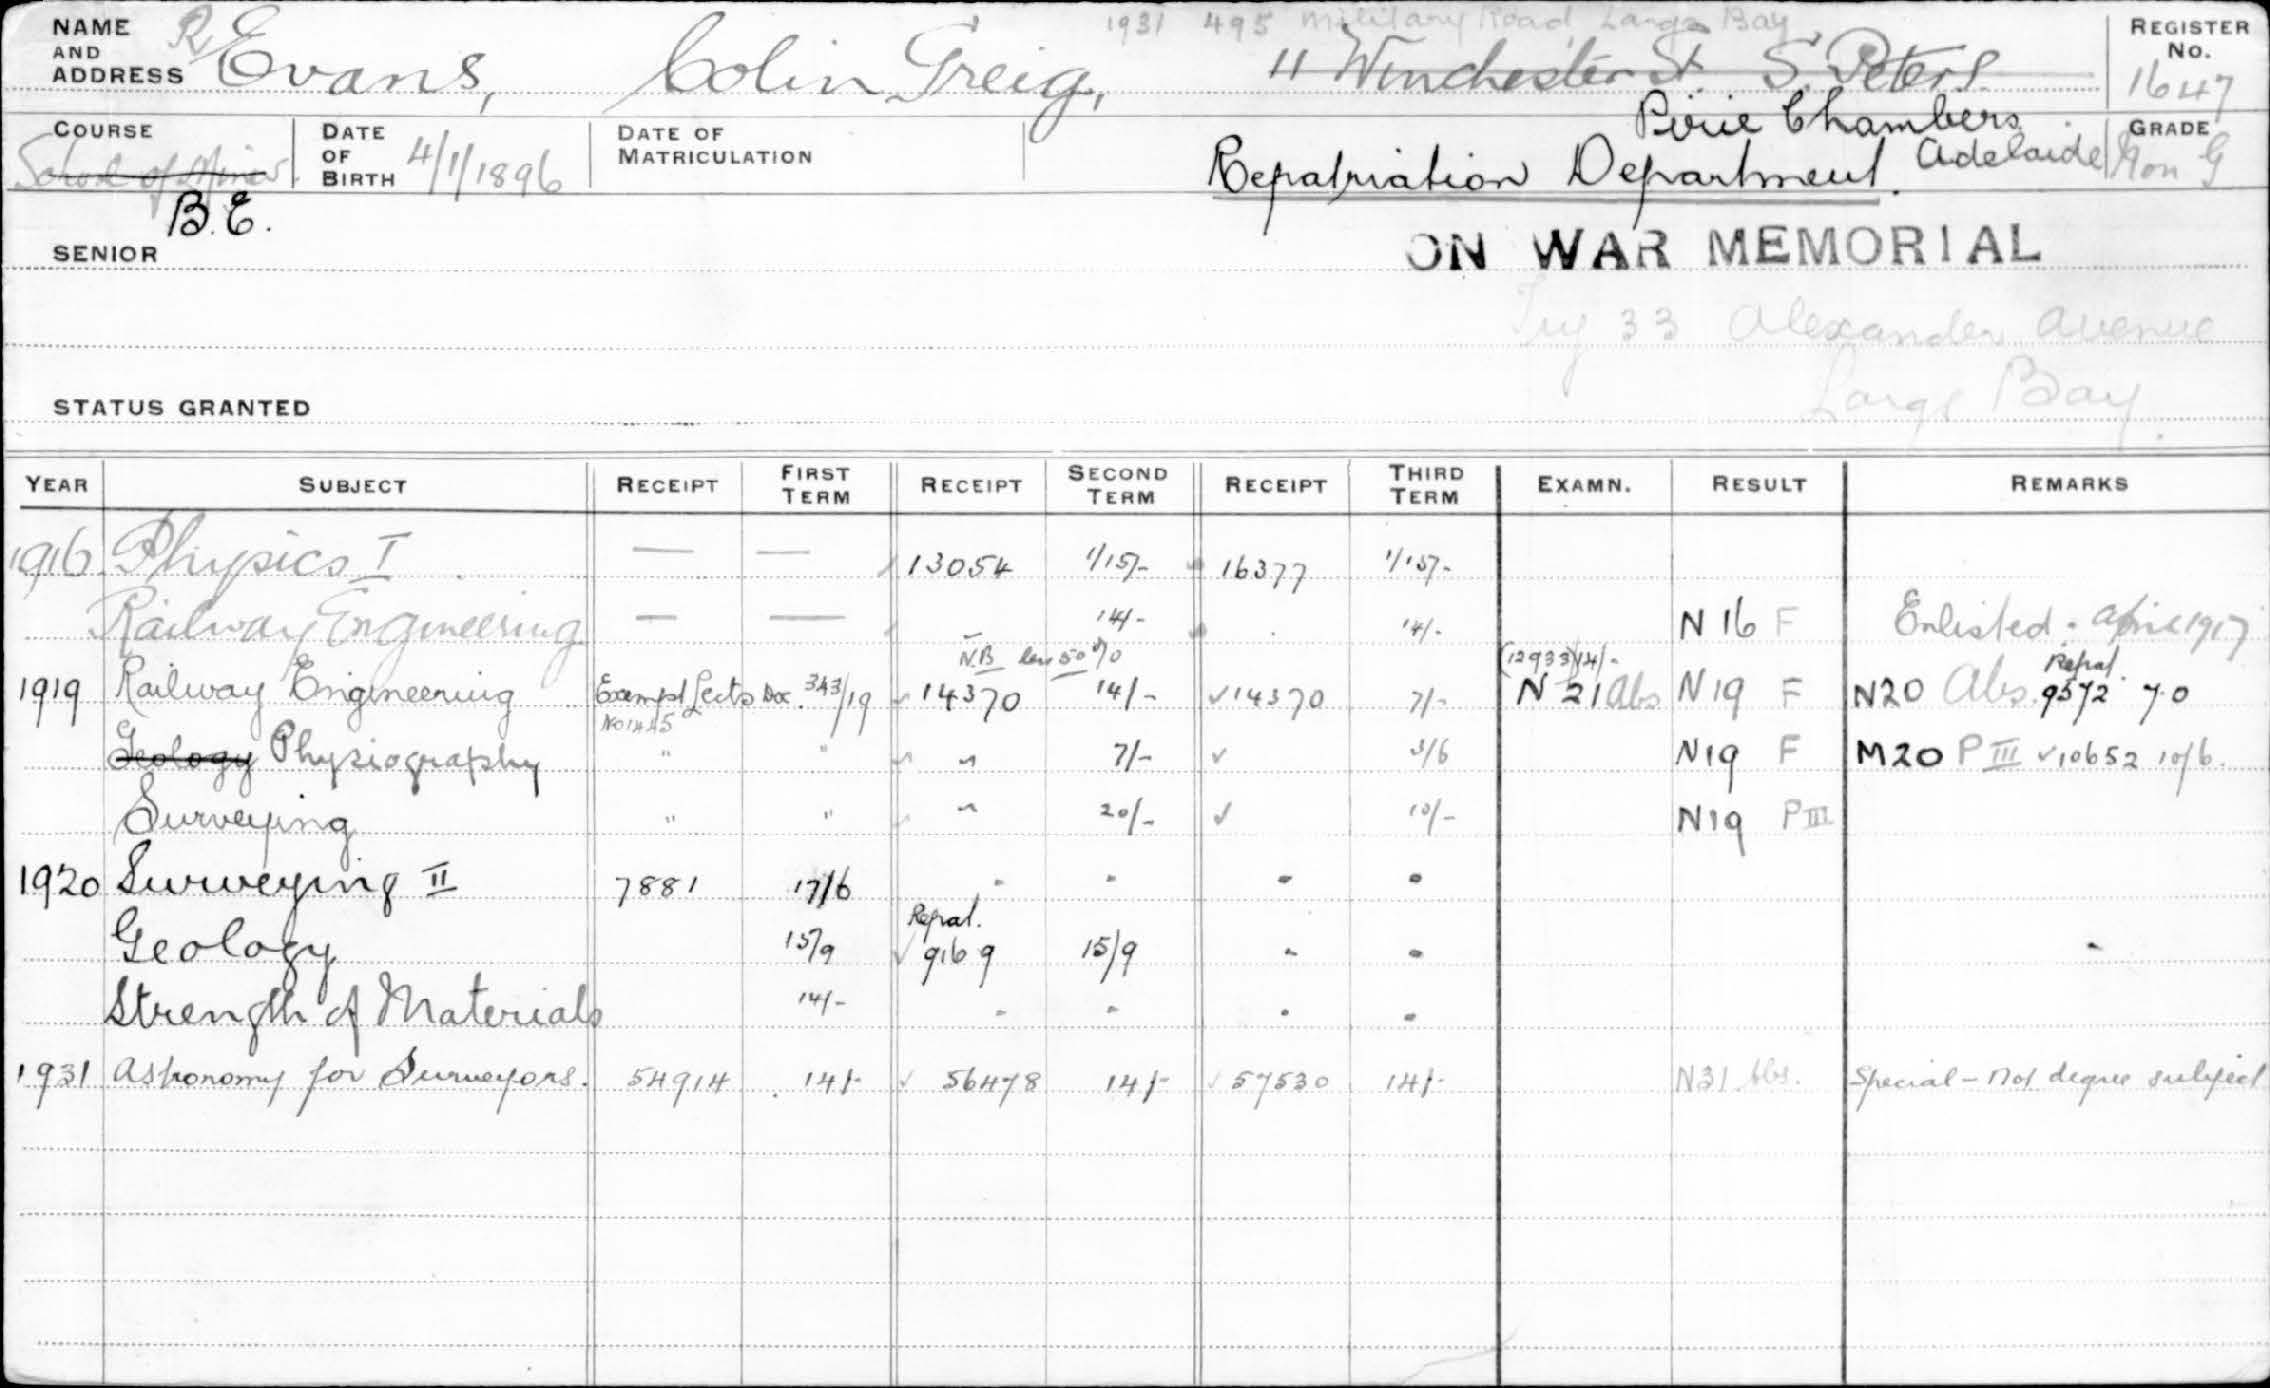 1931 495 Military Road, Largs Bay
NAME AND ADDRESS R Evans, Colin Greig, 11 Winchester St. S. Peters. REGISTER No. 1647
Pirie Chambers
COURSE School of Mines DATE OF BIRTH 4/1/1896 DATE OF MATRICULATION Repatriation Department. Adelaide GRADE Non G
B.E.
SENIOR ON WAR MEMORIAL
Try 33 Alexander Avenue
Largs Bay
STATUS GRANTED
YEAR SUBJECT RECEIPT FIRST TERM RECEIPT SECOND TERM RECEIPT THIRD TERM EXAMN. RESULT REMARKS
1916 Physics I — — 13054 1/15/- 16377 1/15/-
Railway Engineering — — 14/- 14/- N 16 F Enlisted: April 1917
N.B less 50% (12933) 14/- Repat.
1919 Railway Engineering Exempt Lects Doc. 343/19 14370 14/- ✓14370 7/- N 21 Abs N19 F N20 Abs. 9572 7.0
No 1445
Geology Physiography " " " 7/- ✓ 3/6 N19 F M20 P III ✓10652 10/6
Surveying " " " 20/- ✓ 10/- N19 P III
1920 Surveying II 7881 17/6 - - - -
Repat.
Geology 15/9 ✓ 9169 15/9 - - -
Strength of Materials 14/- - - - -
1931 Astronomy for Surveyors. 54914 14/- ✓ 56478 14/- ✓ 57530 14/- N31 Abs. Special - Not degree subject